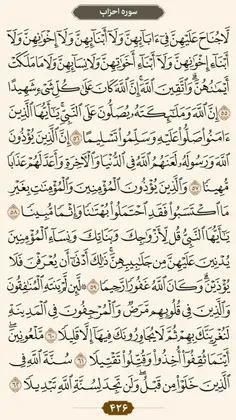 سوره احزاب
لَّا جُنَاحَ عَلَيْهِنَّ فِي ءَابَآئِهِنَّ وَلَآ أَبْنَآئِهِنَّ وَلَآ إِخْوَٰنِهِنَّ وَلَآ
أَبْنَآءِ إِخْوَٰنِهِنَّ وَلَآ أَبْنَآءِ أَخَوَٰتِهِنَّ وَلَا نِسَآئِهِنَّ وَلَا مَا مَلَكَتْ
أَيْمَٰنُهُنَّ ۗ وَٱتَّقِينَ ٱللَّهَ ۚ إِنَّ ٱللَّهَ كَانَ عَلَىٰ كُلِّ شَيْءٍ شَهِيدًا
۵۵ إِنَّ ٱللَّهَ وَمَلَٰٓئِكَتَهُۥ يُصَلُّونَ عَلَى ٱلنَّبِيِّ ۚ يَٰٓأَيُّهَا ٱلَّذِينَ
ءَامَنُوا۟ صَلُّوا۟ عَلَيْهِ وَسَلِّمُوا۟ تَسْلِيمًا ۵۶ إِنَّ ٱلَّذِينَ يُؤْذُونَ
ٱللَّهَ وَرَسُولَهُۥ لَعَنَهُمُ ٱللَّهُ فِي ٱلدُّنْيَا وَٱلْأٓخِرَةِ وَأَعَدَّ لَهُمْ عَذَابًا
مُّهِينًا ۵۷ وَٱلَّذِينَ يُؤْذُونَ ٱلْمُؤْمِنِينَ وَٱلْمُؤْمِنَٰتِ بِغَيْرِ
مَا ٱكْتَسَبُوا۟ فَقَدِ ٱحْتَمَلُوا۟ بُهْتَٰنًا وَإِثْمًا مُّبِينًا ۵۸
يَٰٓأَيُّهَا ٱلنَّبِيُّ قُل لِّأَزْوَٰجِكَ وَبَنَاتِكَ وَنِسَآءِ ٱلْمُؤْمِنِينَ
يُدْنِينَ عَلَيْهِنَّ مِن جَلَٰبِيبِهِنَّ ۚ ذَٰلِكَ أَدْنَىٰٓ أَن يُعْرَفْنَ فَلَا
يُؤْذَيْنَ ۗ وَكَانَ ٱللَّهُ غَفُورًا رَّحِيمًا ۵۹ لَّئِن لَّمْ يَنتَهِ ٱلْمُنَٰفِقُونَ
وَٱلَّذِينَ فِي قُلُوبِهِم مَّرَضٌ وَٱلْمُرْجِفُونَ فِي ٱلْمَدِينَةِ
لَنُغْرِيَنَّكَ بِهِمْ ثُمَّ لَا يُجَاوِرُونَكَ فِيهَآ إِلَّا قَلِيلًا ۶۰ مَّلْعُونِينَ ۖ
أَيْنَمَا ثُقِفُوٓا۟ أُخِذُوا۟ وَقُتِّلُوا۟ تَقْتِيلًا ۶۱ سُنَّةَ ٱللَّهِ فِي
ٱلَّذِينَ خَلَوْا۟ مِن قَبْلُ ۖ وَلَن تَجِدَ لِسُنَّةِ ٱللَّهِ تَبْدِيلًا ۶۲
۴۲۶